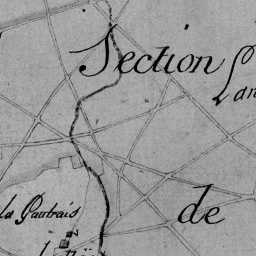 Section
Lan
la Pautrais
de